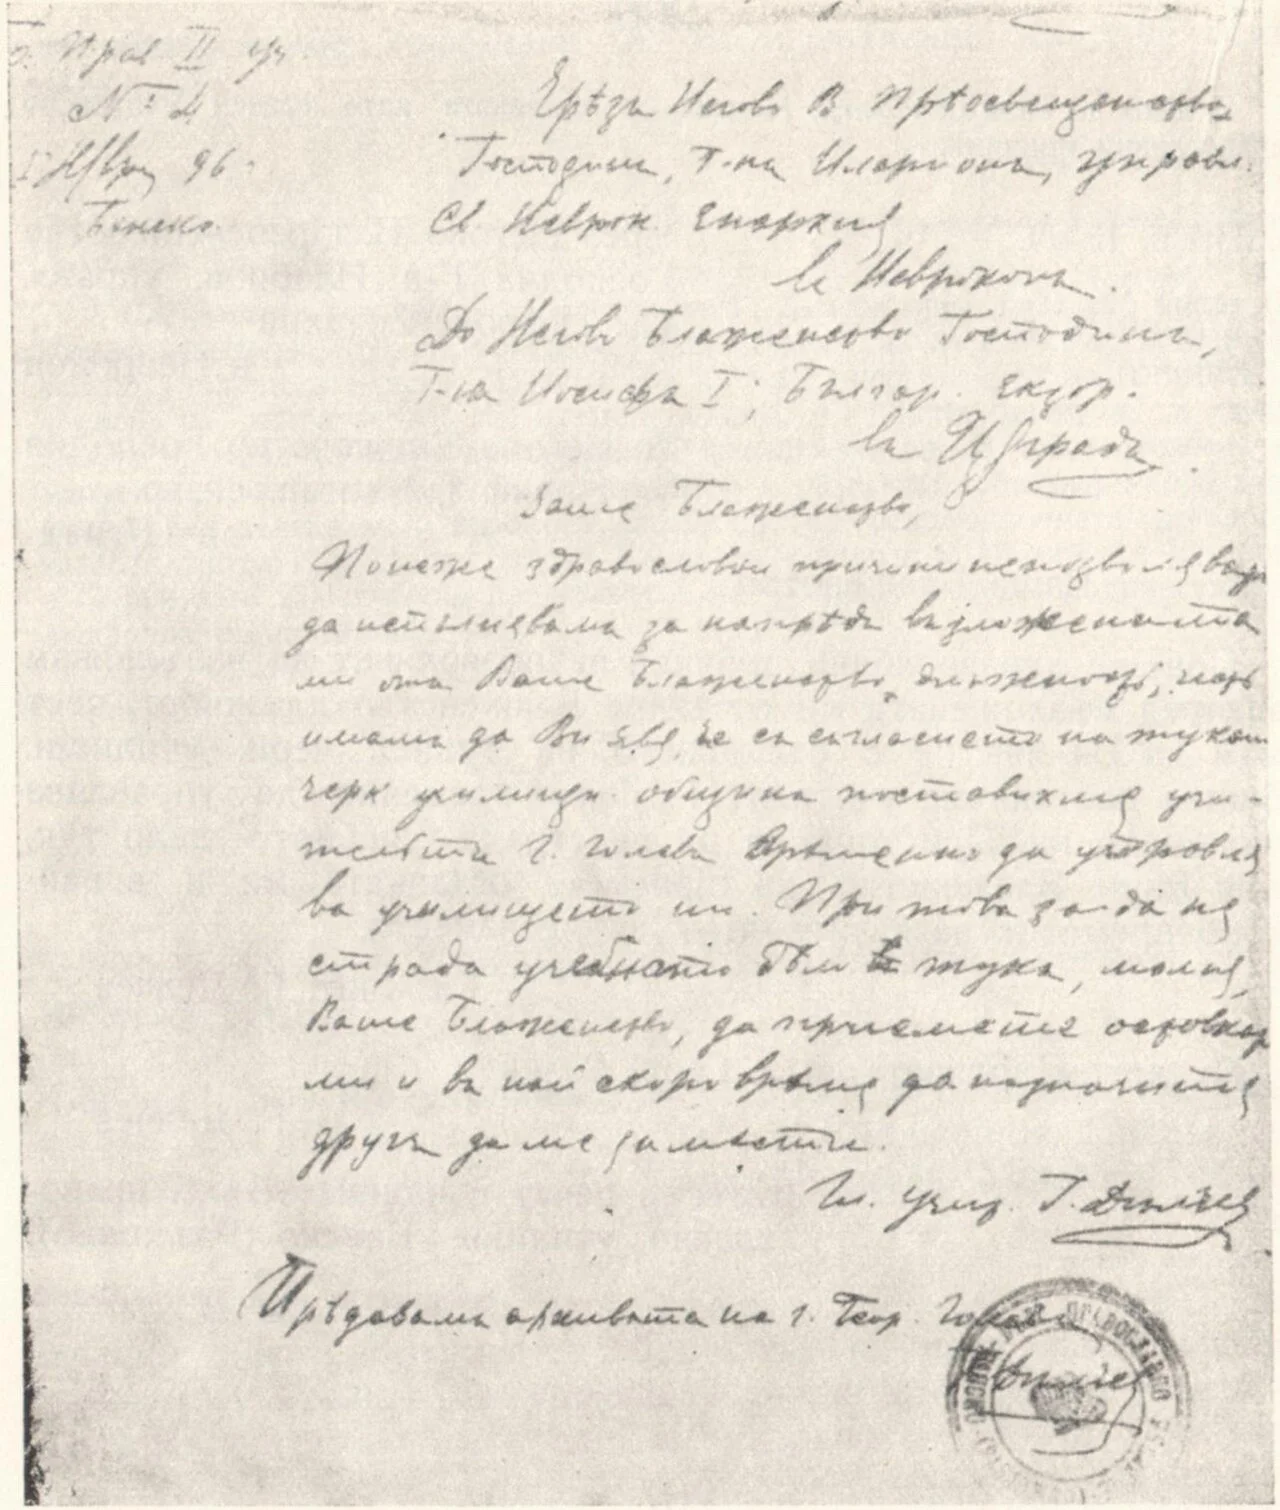 Прав II уч.
№ 4
96
Банско.
Чрѣзъ Негово В. Прѣосвещенство
Господина, Г-на Илариона, управл.
Св. Неврок. Епархия
въ Неврокопъ.
До Негово Блаженство Господина,
Г-на Иосифа I, Българ. Екзар.
въ Цариградъ.
Ваше Блаженство,
Понеже здравословни причини непозволяват
да испълнявамъ за напрѣдъ възложената
ми отъ Ваше Блаженство длъжность, честь
имамъ да Ви явя, че съ съгласието на тукаш.
черк. училищн. община поставихме учи-
тельтъ Г. Голевъ врѣменно да управля
ва училището ни. При това за да не
страда учебното дѣло тука, моля,
Ваше Блаженство, да приемете оставката
ми и въ най скоро врѣме да назначите
другъ да ме замѣсти.
Гл. учит. Г. Дѣлчев
Прѣдавамъ архивата на г. Геор. Голевъ
Г. Дѣлчев